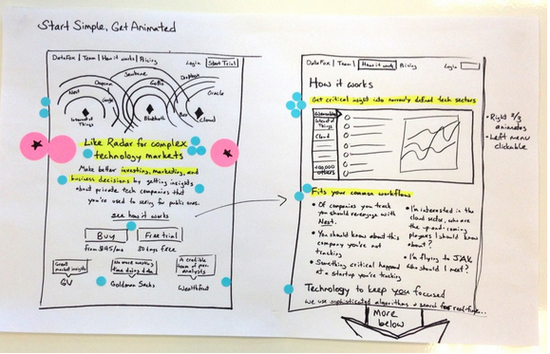 Start Simple, Get Animated
DataFox | Team | How it works | Pricing
Login
Start Trial
Sunshine
Nest
Oracle
Internet of Things
Bluetooth
Cloud
Like Radar for complex
technology markets
Make better investing, marketing, and
business decisions by getting insights
about private tech companies that
you're used to seeing for public ones.
see how it works
Buy
Free trial
from $45/mo
30 days free
Great market insights
No more wasting time doing data
A credible team of analysts
GV
Goldman Sachs
Wealthfront
DataFox | Team | How it works | Pricing
Login
How it works
Get critical insight into narrowly defined tech sectors
Internet of Things
Cloud
+60,000 others
• Right 2/3
animates
• Left menu
clickable
Fits your common workflows
• Of companies you track
you should reengage with
Nest.
• You should know about this
company you're not
tracking
• Something critical happened
at a startup you're tracking
• I'm interested in the
cloud sector, who are
the up-and-coming
players I should know
about?
• I'm flying to JFK
who should I meet?
Technology to keep you focused
We use sophisticated algorithms + search for real-time...
More
below